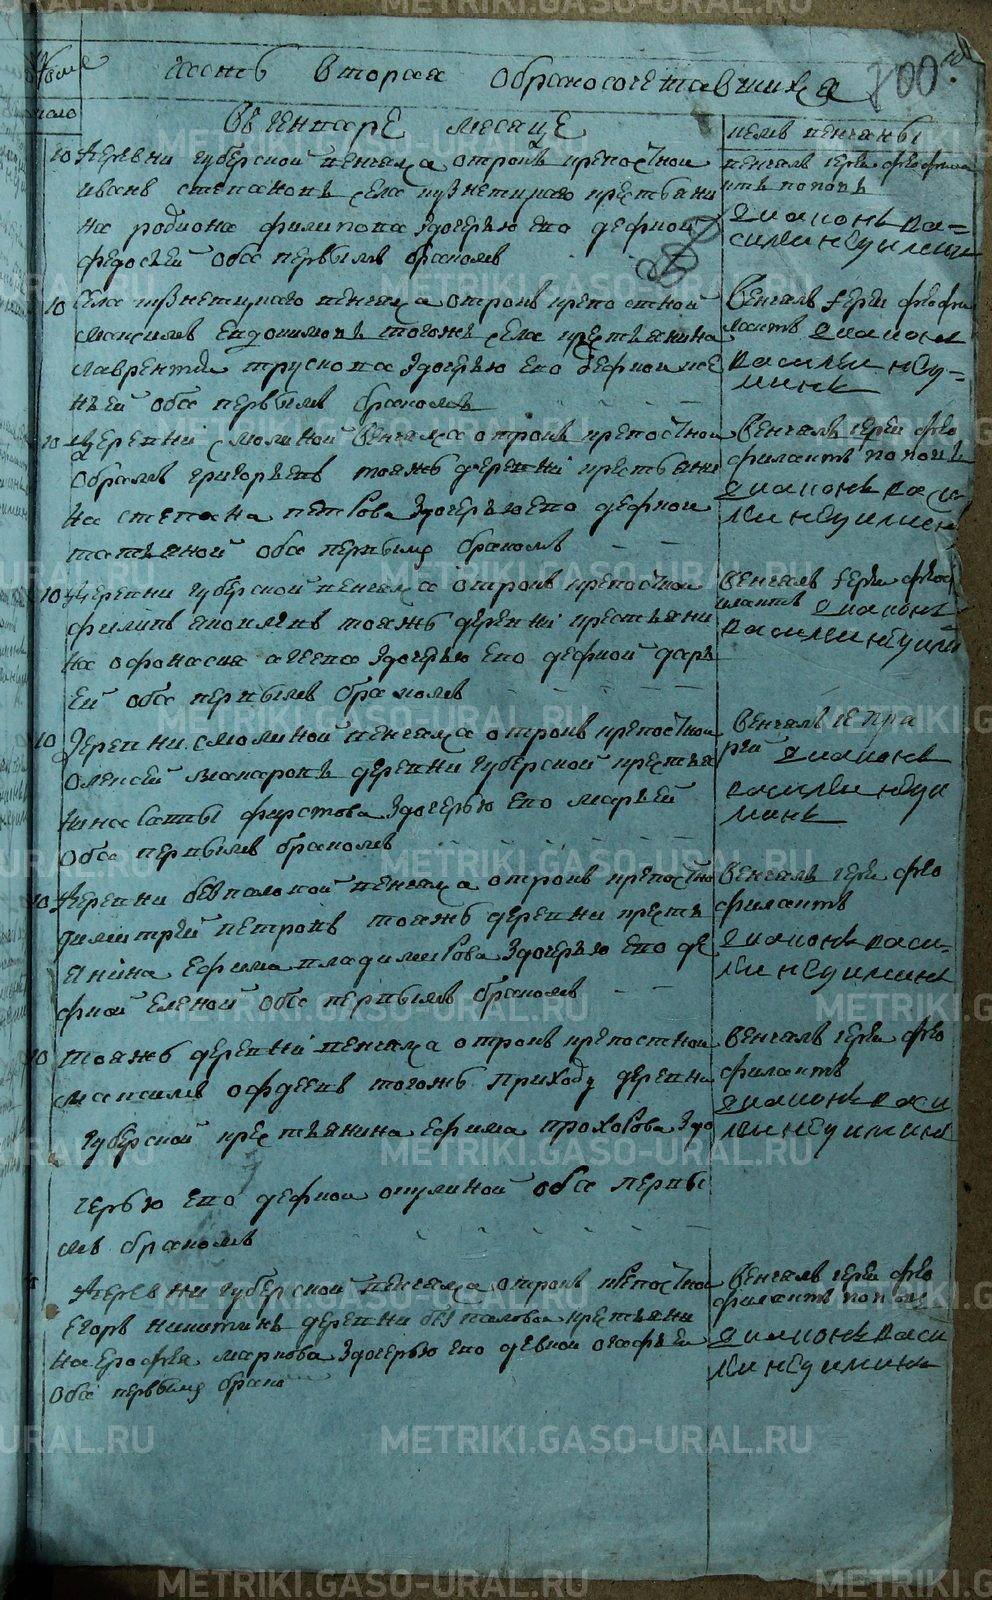 часть вторая обракосочетавшихся
800
число
Въ генваре месяце
кемъ венчаны
10 деревни губерской венчался отрокъ крепостной
иванъ степановъ села кузнетцкаго крестьяни
на родиона филипова здочерью ево девкой
федосьей оба первымъ бракомъ
венчалъ иереи феофила
ктъ поповъ
диаконъ ва=
силеи неуиминъ
10 села кузнетцкаго венчался отрокъ крепостной
максимъ евдокимовъ тогожъ села крестьянина
лаврентья трускова здочерью ево девкой ксе
ньей оба первымъ бракомъ
венчалъ иереи феофи
лактъ диаконъ
василеи неу=
минъ
10 деревни смолиной венчался отрокъ крепостной
абрамъ григорьевъ тояжъ деревни крестьяни
на степана петрова здочерью ево девкой
татьяной оба первымъ бракомъ
венчалъ иереи фео
филактъ поповъ
диаконъ васи
леи неуиминъ
10 деревни губерской венчался отрокъ крепостной
филипъ яковлевъ тояжъ деревни крестьяни
на офонасия агеева здочерью ево девкой дарь
ей оба первымъ бракомъ
венчалъ иереи феоф
илактъ диаконъ
василеи неуими
10 деревни смолиной венчался отрокъ крепостной
олексей макаровъ деревни губерской крестья
нина саввы фирстова здочерью ево марьей
оба первымъ бракомъ
венчалъ
диаконъ
василеи неуи
минъ
10 деревни безпаловой венчался отрокъ крепостно
димитрей петровъ тояжъ деревни кресть
янина ефима владимирова здочерью ево де
фкой еленой оба первымъ бракомъ
венчалъ иереи фео
филактъ
диаконъ васи=
леи неуиминъ
10 тояжъ деревни венчался отрокъ крепостной
максимъ офдеевъ тогожъ приходу деревни
губерской крестьянина ефима прохорова здо
черью ево девкой окулиной оба первы
мъ бракомъ
венчалъ иереи фео
филактъ
диаконъ васи
леи неуиминъ
деревни губерской венчался отрокъ крепостной
егоръ никитинъ деревни безпаловой крестьяни
на ерофея маркова здочерью ево девкой огафьей
оба первымъ брако
венчалъ иереи фео
филактъ поповъ
диаконъ васи
леи неуиминъ